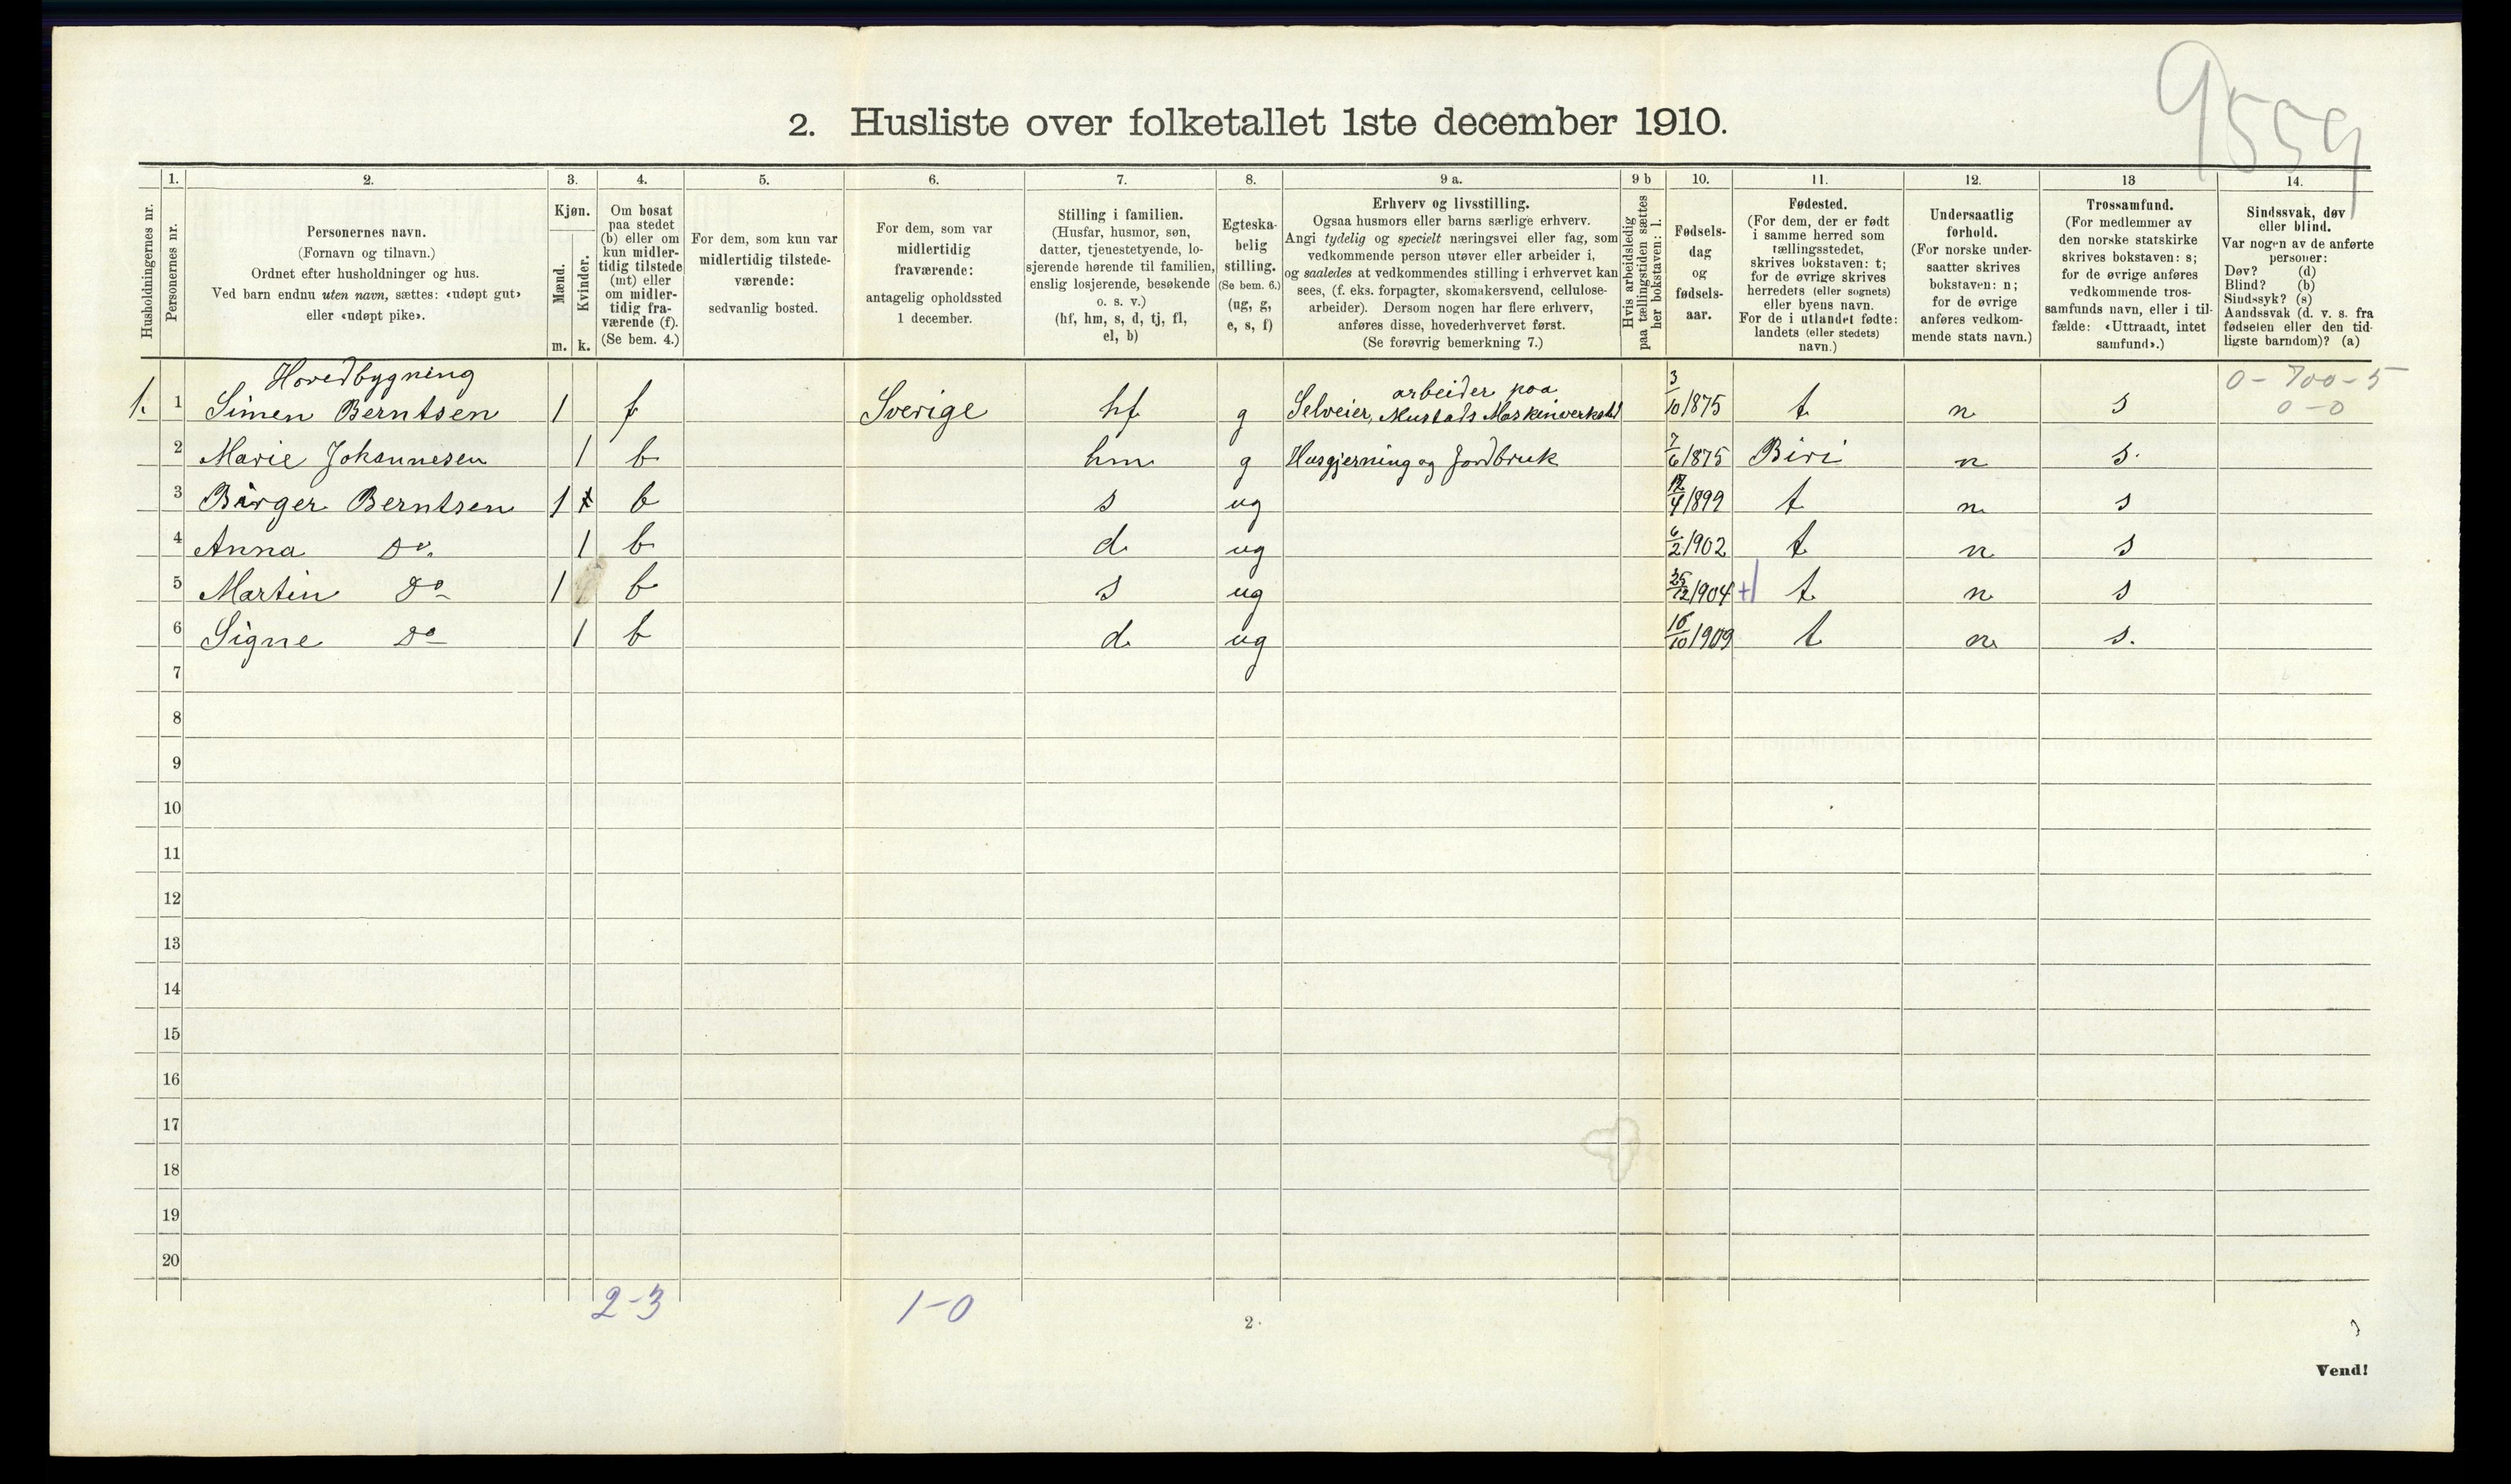 9559
2. Husliste over folketallet 1ste december 1910.
Husholdningernes nr.
1.
Personernes nr.
2.
Personernes navn.
(Fornavn og tilnavn.)
Ordnet efter husholdninger og hus.
Ved barn endnu uten navn, sættes: «udøpt gut»
eller «udøpt pike».
3.
Kjøn.
Mænd.
Kvinder.
m. k.
4.
Om bosat
paa stedet
(b) eller om
kun midler-
tidig tilstede
(mt) eller
om midler-
tidig fra-
værende (f).
(Se bem. 4.)
5.
For dem, som kun var
midlertidig tilstede-
værende:
sedvanlig bosted.
6.
For dem, som var
midlertidig
fraværende:
antagelig opholdssted
1 december.
7.
Stilling i familien.
(Husfar, husmor, søn,
datter, tjenestetyende, lo-
sjerende hørende til familien,
enslig losjerende, besøkende
o. s. v.)
(hf, hm, s, d, tj, fl,
el, b)
8.
Egteska-
belig
stilling.
(Se bem. 6.)
(ug, g,
e, s, f)
9 a.
Erhverv og livsstilling.
Ogsaa husmors eller barns særlige erhverv.
Angi tydelig og specielt næringsvei eller fag, som
vedkommende person utøver eller arbeider i,
og saaledes at vedkommendes stilling i erhvervet kan
sees, (f. eks. forpagter, skomakersvend, cellulose-
arbeider). Dersom nogen har flere erhverv,
anføres disse, hovederhvervet først.
(Se forøvrig bemerkning 7.)
9 b
Hvis arbeidsledig
paa tællingstiden sættes
her bokstaven: l.
10.
Fødsels-
dag
og
fødsels-
aar.
11.
Fødested.
(For dem, der er født
i samme herred som
tællingsstedet,
skrives bokstaven: t;
for de øvrige skrives
herredets (eller sognets)
eller byens navn.
For de i utlandet fødte:
landets (eller stedets)
navn.)
12.
Undersaatlig
forhold.
(For norske under-
saatter skrives
bokstaven: n;
for de øvrige
anføres vedkom-
mende stats navn.)
13
Trossamfund.
(For medlemmer av
den norske statskirke
skrives bokstaven: s;
for de øvrige anføres
vedkommende tros-
samfunds navn, eller i til-
fælde: «Uttraadt, intet
samfund».)
14.
Sindssvak, døv
eller blind.
Var nogen av de anførte
personer:
Døv? (d)
Blind? (b)
Sindssyk? (s)
Aandssvak (d. v. s. fra
fødselen eller den tid-
ligste barndom)? (a)
Hovedbygning
1. 1 Simen Berntsen 1 f Sverige hf g Selveier, arbeider paa Mustads Maskinverksted 3/10 1875 t n s
0-700-5
0-0
2 Marie Johannesen 1 b hm g Husgjerning og Jordbruk 7/6 1875 Biri n s.
3 Birger Berntsen 1 b s ug 12/4 1899 t n s
4 Anna Do. 1 b d ug 6/2 1902 t n s
5 Martin Do 1 b s ug 25/12 1904 + t n s
6 Signe Do 1 b d ug 16/10 1909 t n s.
7
8
9
10
11
12
13
14
15
16
17
18
19
20
2-3 1-0
2
Vend!